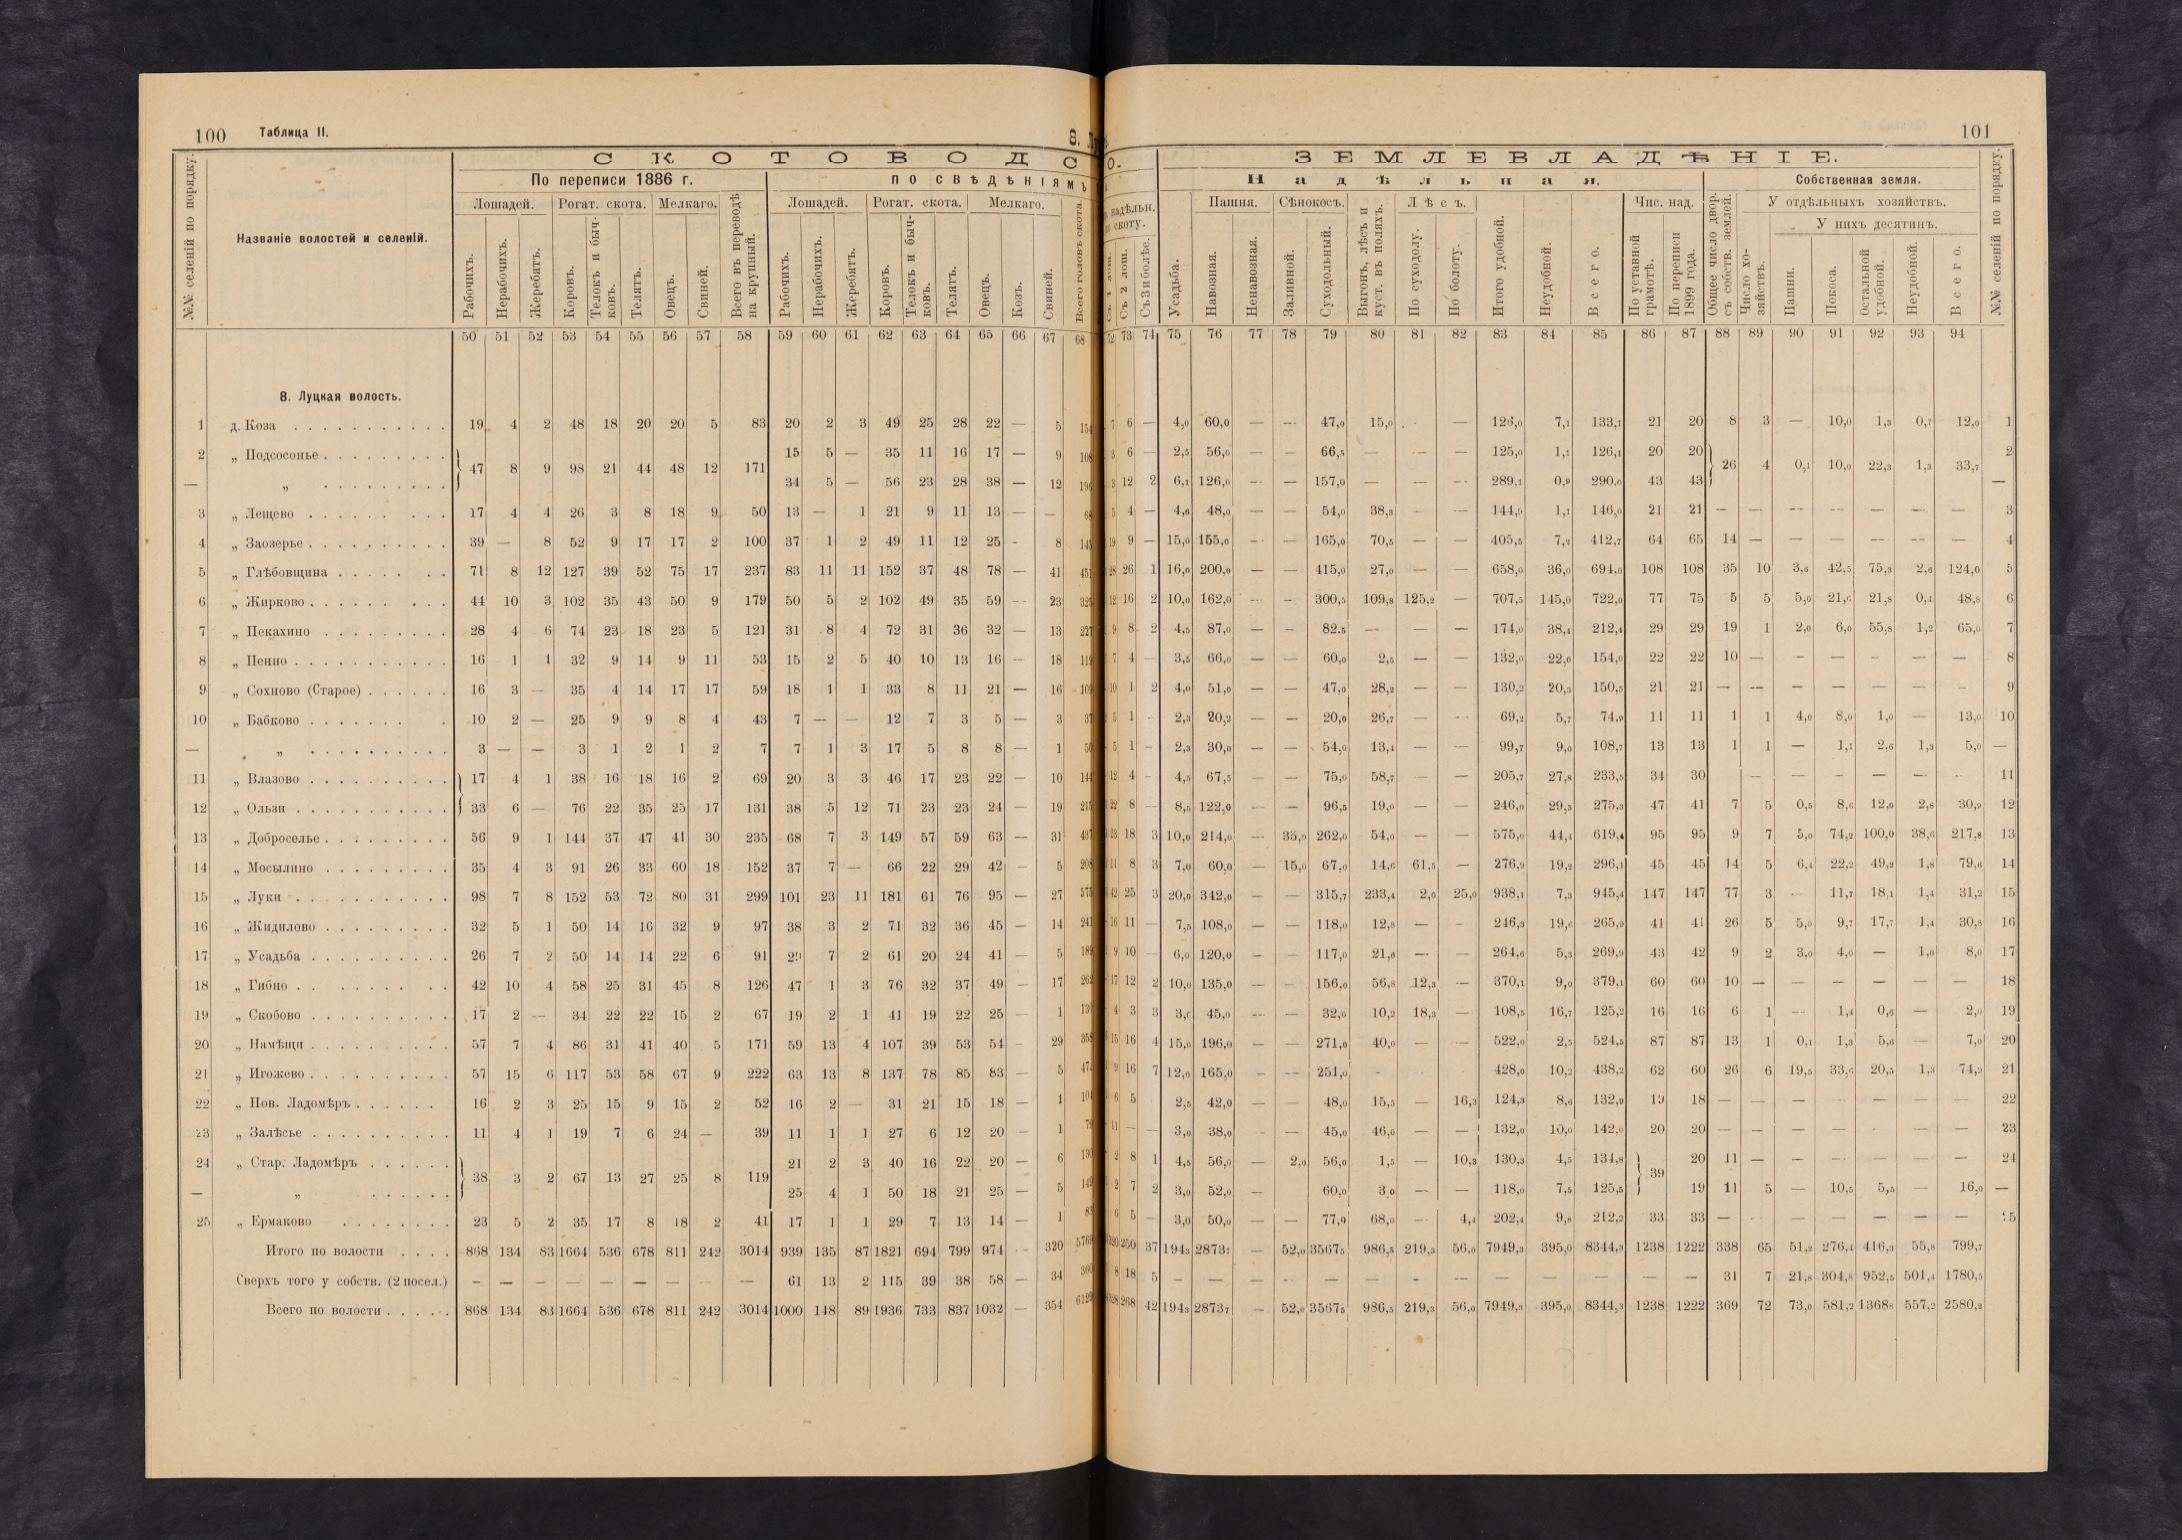 100 Таблица II.
С К О Т О В О Д С
По переписи 1886 г. по свѣдѣніямъ
Лошадей. Рогат. скота. Мелкаго. Лошадей. Рогат. скота. Мелкаго.
№№ селеній по порядку.
Названіе волостей и селеній.
Рабочихъ. Нерабочихъ. Жеребятъ. Коровъ. Телокъ и бычковъ. Телятъ. Овецъ. Свиней. Всего въ переводѣ на крупный. Рабочихъ. Нерабочихъ. Жеребятъ. Коровъ. Телокъ и бычковъ. Телятъ. Овецъ. Козъ. Свиней. Всего головъ скота.
50 51 52 53 54 55 56 57 58 59 60 61 62 63 64 65 66 67 68
8. Луцкая волость.
1 д. Коза 19 4 2 48 18 20 20 5 83 20 2 3 49 25 28 22 — 5 154
2 „ Подсосонье 47 8 9 98 21 44 48 12 171 15 5 — 35 11 16 17 — 9 108
— „ 34 5 — 56 23 28 38 — 12 196
3 „ Лещево 17 4 4 26 3 8 18 9 50 13 — 1 21 9 11 13 — — 68
4 „ Заозерье 39 — 8 52 9 17 17 2 100 37 1 2 49 11 12 25 - 8 145
5 „ Глѣбовщина 71 8 12 127 39 52 75 17 237 83 11 11 152 37 48 78 — 41 451
6 „ Жирково 44 10 3 102 35 43 50 9 179 50 5 2 102 49 35 59 — 23 325
7 „ Пекахино 28 4 6 74 23 18 23 5 121 31 8 4 72 31 36 32 — 13 227
8 „ Пенно 16 1 1 32 9 14 9 11 53 15 2 5 40 10 13 16 — 18 119
9 „ Сохново (Старое) 16 3 — 35 4 14 17 17 59 18 1 1 33 8 11 21 — 16 109
10 „ Бабково 10 2 — 25 9 9 8 4 43 7 — — 12 7 3 5 — 3 37
— „ 3 — — 3 1 2 1 2 7 7 1 3 17 5 8 8 — 1 50
11 „ Влазово 17 4 1 38 16 18 16 2 69 20 3 3 46 17 23 22 — 10 144
12 „ Ользи 33 6 — 76 22 35 25 17 131 38 5 12 71 23 23 24 — 19 215
13 „ Доброселье 56 9 1 144 37 47 41 30 235 68 7 3 149 57 59 63 — 31 437
14 „ Мосылино 35 4 3 91 26 33 60 18 152 37 7 — 66 22 29 42 — 5 208
15 „ Луки 98 7 8 152 53 72 80 31 299 101 23 11 181 61 76 95 — 27 575
16 „ Жидилово 32 5 1 50 14 16 32 9 97 38 3 2 71 32 36 45 — 14 241
17 „ Усадьба 26 7 2 50 14 14 22 6 91 29 7 2 61 20 24 41 — 5 189
18 „ Гибно 42 10 4 58 25 31 45 8 126 47 1 3 76 32 37 49 — 17 262
19 „ Скобово 17 2 — 34 22 22 15 2 67 19 2 1 41 19 22 25 — 1 130
20 „ Намѣщи 57 7 4 86 31 41 40 5 171 59 13 4 107 39 53 54 - 29 358
21 „ Игожево 57 15 6 117 53 58 67 9 222 63 13 8 137 78 85 83 — 5
22 „ Нов. Ладомѣръ 16 2 3 25 15 9 15 2 52 16 2 — 31 21 15 18 — 1 104
23 „ Залѣсье 11 4 1 19 7 6 24 — 39 11 1 1 27 6 12 20 — 1 79
24 „ Стар. Ладомѣръ 38 3 2 67 13 27 25 8 119 21 2 3 40 16 22 20 — 6 130
— „ 25 4 1 50 18 21 25 — 5
25 „ Ермаково 23 5 2 35 17 8 18 2 41 17 1 1 29 7 13 14 — 1
Итого по волости 868 134 83 1664 536 678 811 242 3014 939 135 87 1821 694 799 974 - 320 5769
Сверхъ того у собств. (2 посел.) — — — — — — — — — 61 13 2 115 39 38 58 — 34 360
Всего по волости 868 134 83 1664 536 678 811 242 3014 1000 148 89 1936 733 837 1032 — 354 6129
101
О. З Е М Л Е В Л А Д Ѣ Н І Е.
Надѣльная. Собственная земля.
надѣльн. скоту. Пашня. Сѣнокосъ. Лѣсъ. Чис. над. У отдѣльныхъ хозяйствъ.
У нихъ десятинъ.
Съ 1 лош. Съ 2 лош. Съ 3 и болѣе. Усадьба. Навозная. Ненавозная. Заливной. Суходольный. Выгонъ, лѣсъ и куст. въ поляхъ. По суходолу. По болоту. Итого удобной. Неудобной. Всего. По уставной грамотѣ. По переписи 1899 года. Общее число двор. съ собств. землей. Число хозяйствъ. Пашни. Покоса. Остальной удобной. Неудобной. Всего. №№ селеній по порядку.
72 73 74 75 76 77 78 79 80 81 82 83 84 85 86 87 88 89 90 91 92 93 94
7 6 — 4,0 60,0 — — 47,0 15,0 . — 126,0 7,1 133,1 21 20 8 3 — 10,0 1,3 0,7 12,0 1
3 6 — 2,5 56,0 — — 66,5 — — — 125,0 1,1 126,1 20 20 26 4 0,1 10,0 22,3 1,3 33,7 2
3 12 2 6,1 126,0 — — 157,0 — — — 289,1 0,9 290,0 43 43 —
5 4 — 4,6 48,0 — — 54,0 38,3 - — 144,9 1,1 146,0 21 21 — — — — — — — 3
19 9 — 15,0 155,0 — — 165,0 70,5 — — 405,5 7,2 412,7 64 65 14 — — — — — — 4
28 26 1 16,0 200,0 — — 415,0 27,0 — — 658,0 36,0 694,0 108 108 35 10 3,6 42,5 75,3 2,6 124,0 5
12 16 2 10,0 162,0 — - 300,5 109,8 125,2 — 707,5 145,0 722,0 77 75 5 5 5,0 21,6 21,8 0,4 48,8 6
9 8 2 4,5 87,0 — — 82,5 — — — 174,0 38,4 212,4 29 29 19 1 2,0 6,0 55,8 1,2 65,0 7
7 4 — 3,5 66,0 — — 60,0 2,5 — — 132,0 22,0 154,0 22 22 10 — — — — — — 8
10 1 2 4,0 51,0 — — 47,0 28,2 — — 130,2 20,3 150,5 21 21 — — — — — — - 9
5 1 - 2,3 20,2 — — 20,0 26,7 — - 69,2 5,7 74,9 11 11 1 1 4,0 8,0 1,0 — 13,0 10
5 1 — 2,3 30,0 — — 54,0 13,4 — — 99,7 9,0 108,7 13 13 1 1 — 1,1 2,6 1,3 5,0 —
12 4 - 4,5 67,5 — — 75,0 58,7 — — 205,7 27,8 233,5 34 30 — — — — — - 11
22 8 — 8,5 122,0 — — 96,5 19,0 — — 246,0 29,3 275,3 47 41 7 5 0,5 8,6 12,0 2,8 30,9 12
23 18 3 10,0 214,0 — 35,0 262,0 54,0 — — 575,0 44,4 619,4 95 95 9 7 5,0 74,2 100,0 38,6 217,8 13
11 8 3 7,0 60,0 — 15,0 67,0 14,6 61,5 — 276,9 19,2 296,1 45 45 14 5 6,4 22,2 49,2 1,8 79,6 14
42 25 3 20,0 342,0 — — 315,7 233,4 2,0 25,0 938,1 7,3 945,4 147 147 77 3 - 11,7 18,1 1,4 31,2 15
16 11 — 7,5 108,0 — — 118,0 12,8 — - 246,3 19,6 265,9 41 41 26 5 5,0 9,7 17,7 1,4 30,8 16
9 10 — 6,0 120,0 — — 117,0 21,6 — — 264,6 5,3 269,9 43 42 9 2 3,0 4,0 — 1,0 8,0 17
17 12 2 10,0 135,0 — — 156,0 56,8 12,3 — 370,1 9,0 379,1 60 60 10 — — — — — — 18
4 3 3 45,0 — — 32,0 10,2 18,3 — 108,5 16,7 125,2 16 16 6 1 — 1,4 0,6 — 2,0 19
15 16 4 15,0 196,0 — — 271,0 40,0 — — 522,0 2,5 524,5 87 87 13 1 0,1 1,3 5,6 — 7,0 20
9 16 7 12,0 165,0 — — 251,0 - - 428,0 10,2 438,2 62 60 26 6 19,5 33,6 20,5 1,3 74,9 21
6 5 2,5 42,0 — — 48,0 15,5 — 16,3 124,3 8,6 132,9 19 18 — — — — — — — 22
11 — — 3,0 38,0 - — 45,0 46,0 — — 132,0 10,0 142,0 20 20 — — — — — — — 23
2 8 1 4,5 56,0 — 2,0 56,0 1,5 — 10,3 130,3 4,5 134,8 39 20 11 — — — — — — 24
2 7 2 3,0 52,0 — 60,0 3,0 — — 118,0 7,5 125,5 19 11 5 — 10,5 5,5 — 16,0 —
6 5 — 3,0 50,0 — — 77,0 68,0 — 4,4 202,4 9,8 212,2 33 33 — — — — — — — 25
320 250 37 194,3 2873,7 52,0 3567,5 986,5 219,3 56,0 7949,3 395,0 8344,3 1238 1222 338 65 51,2 276,4 416,3 55,8 799,7
8 18 5 — — — — — — — — — — — — — 31 7 21,8 304,8 952,5 501,4 1780,5
328 268 42 194,3 2873,7 — 52,0 3567,5 986,5 219,3 56,0 7949,3 395,0 8344,3 1238 1222 369 72 73,0 581,2 1368,8 557,2 2580,2